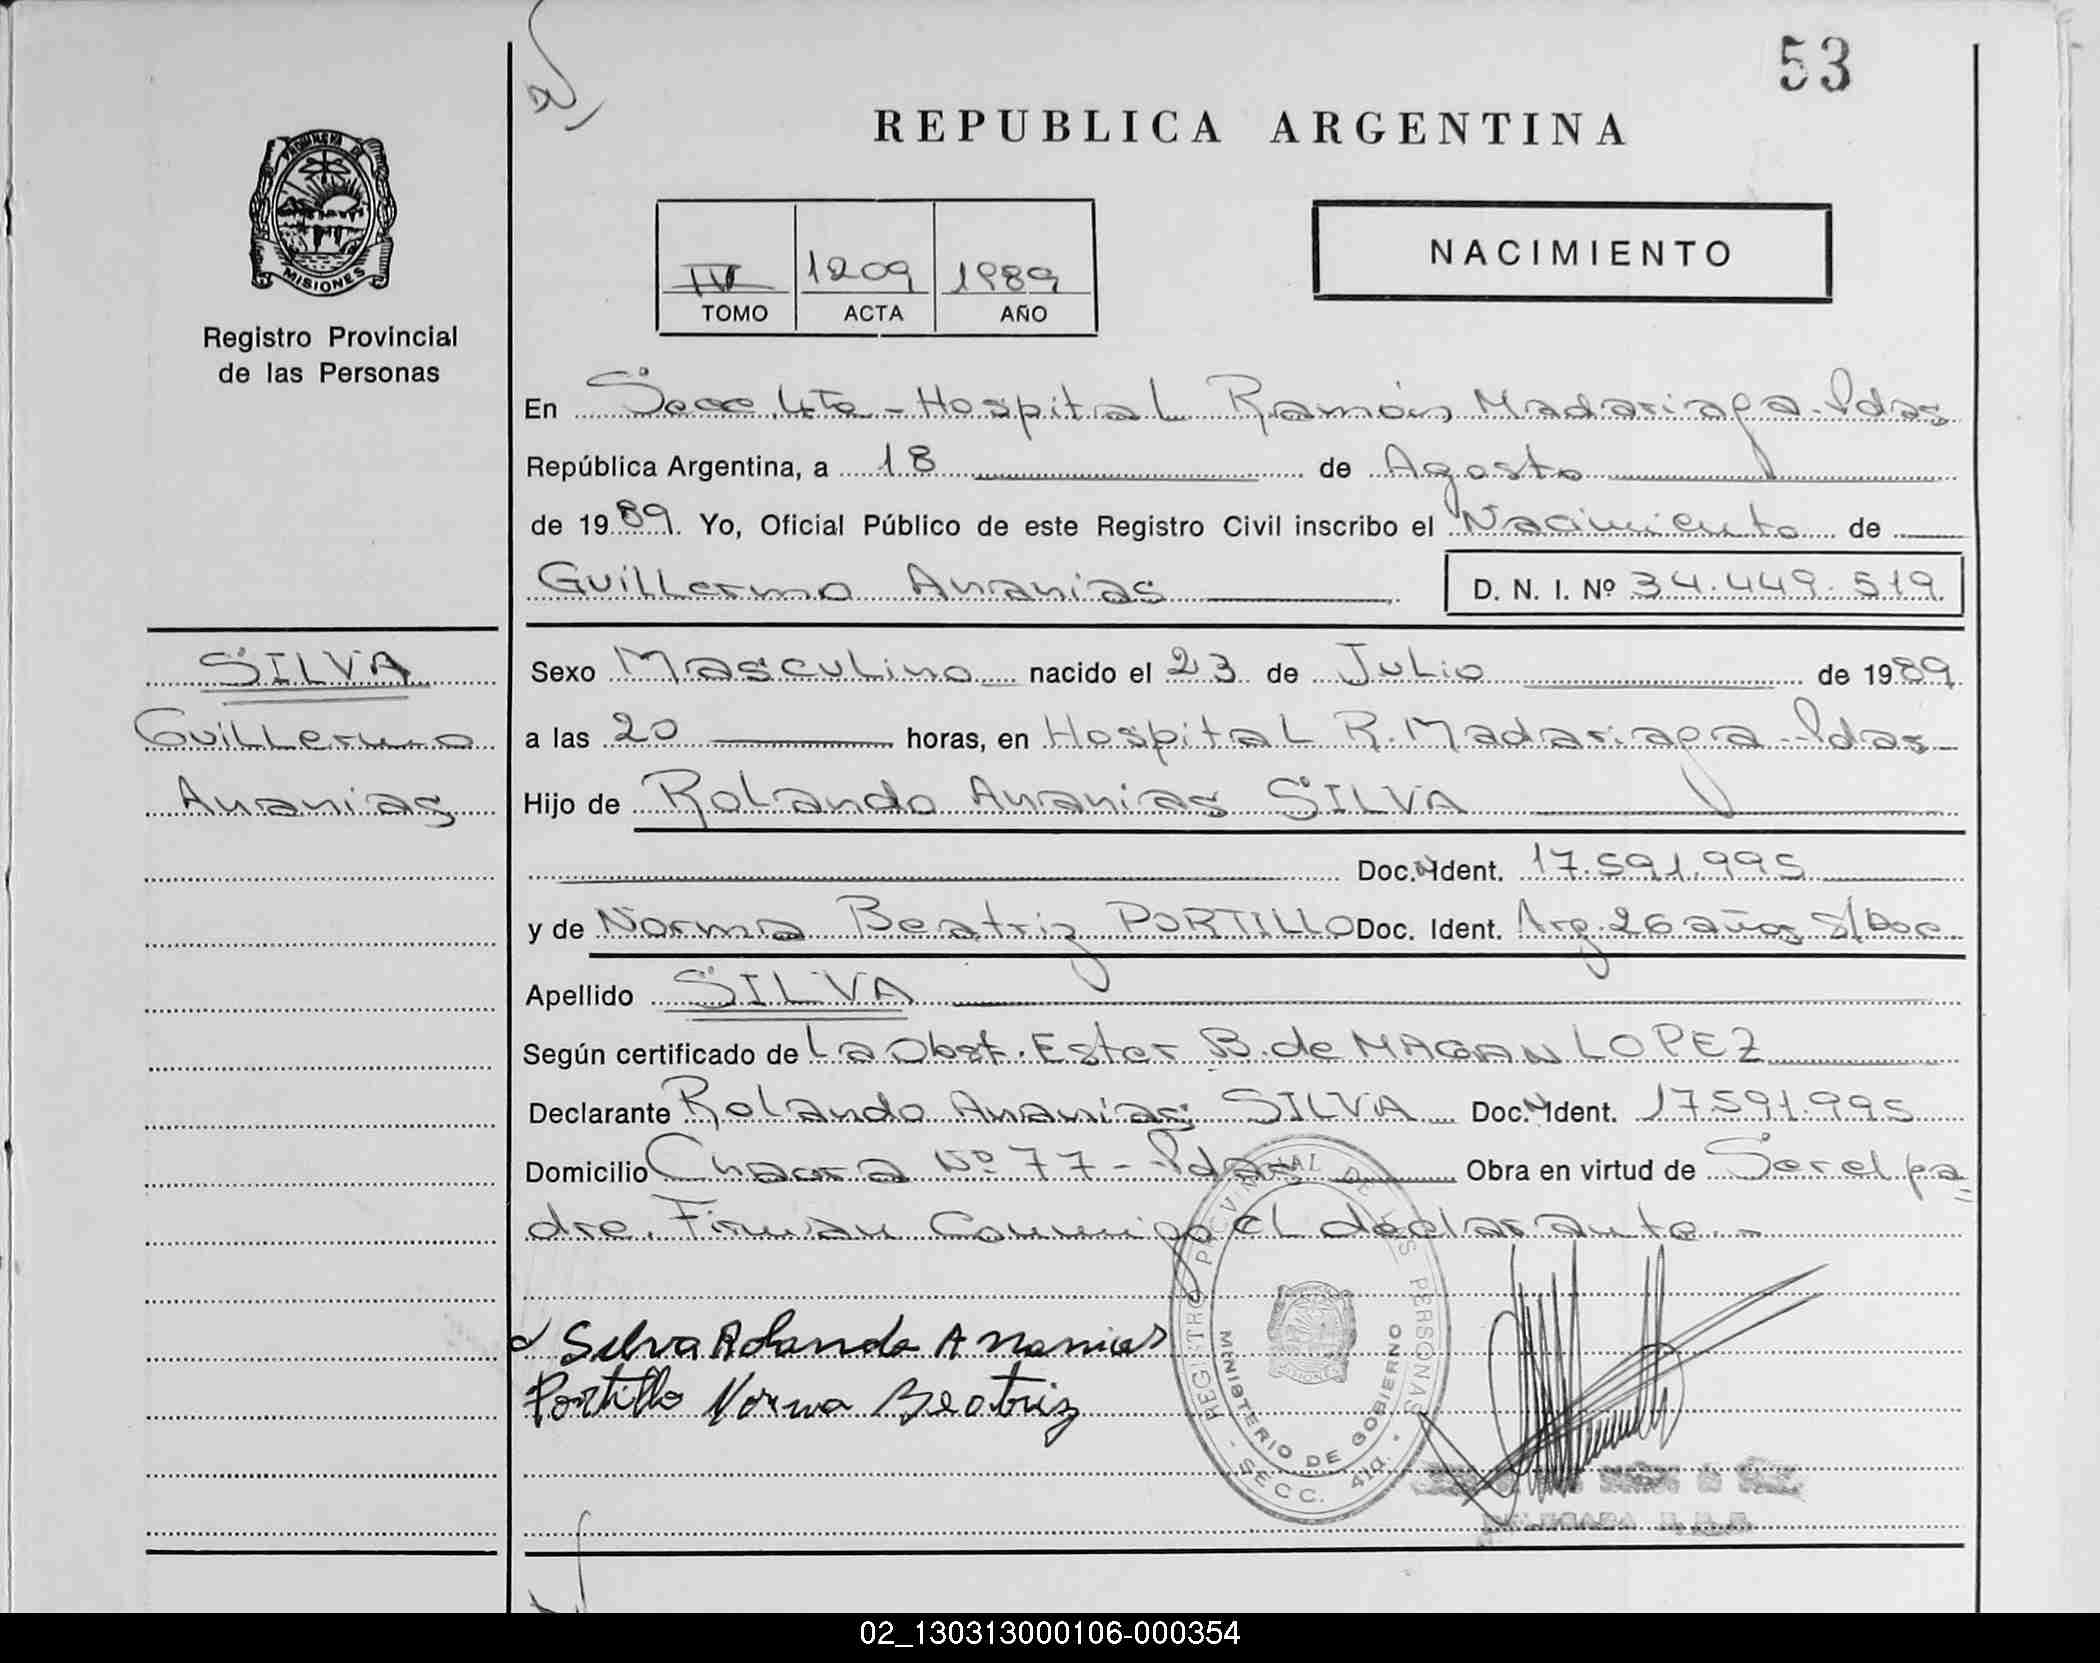 53
REPUBLICA ARGENTINA
PROVINCIA DE
MISIONES
Registro Provincial
de las Personas
NACIMIENTO
IV 1209 1989
TOMO ACTA AÑO
En Secc. 4ta - Hospital Ramón Madariaga - Pdas
República Argentina, a 18 de Agosto
de 1989. Yo, Oficial Público de este Registro Civil inscribo el Nacimiento de
Guillermo Ananias D. N. I. Nº 34.449.519
SILVA
Guillermo
Ananias
Sexo Masculino nacido el 23 de Julio de 1989
a las 20 horas, en Hospital R. Madariaga - Pdas -
Hijo de Rolando Ananias SILVA
Doc. Ident. 17.591.995
y de Norma Beatriz PORTILLO Doc. Ident. Arg. 26 años S/Doc
Apellido SILVA
Según certificado de La Obst. Ester B. de MAGAN LOPEZ
Declarante Rolando Ananias SILVA Doc. Ident. 17.591.995
Domicilio Chacra Nº 77 - Pdas Obra en virtud de Ser el pa=
dre. Firman Conmigo el declarante. -
Silva Rolando Ananias
Portillo Norma Beatriz
REGISTRO PROVINCIAL DE LAS PERSONAS
MINISTERIO DE GOBIERNO
- SECC. 4ta. -
02_130313000106-000354